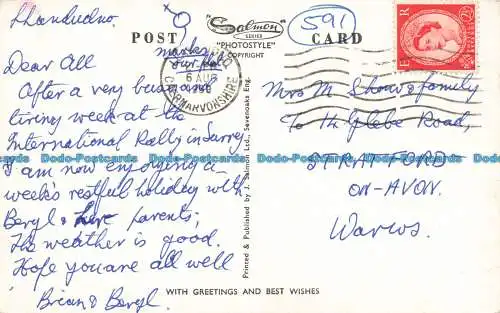 Llandudno.
POST
Salmon
SERIES
"PHOTOSTYLE"
COPYRIGHT
CARD
591
E R
marks
our
6 AUG
CAERNARVONSHIRE
Dear All
After a very busy and
tiring week at the
International Rally in Surrey
I am now enjoying a
week's restful holiday with
Beryl & her parents,
The weather is good.
Hope you are all well
Brian & Beryl.
Mrs M. Show & family
To 14 Glebe Road,
STRATFORD
ON-AVON.
Warws.
Printed & Published by J. Salmon Ltd., Sevenoaks Eng.
WITH GREETINGS AND BEST WISHES
Dodo-Postcards Dodo-Postcards Dodo-Postcards Dodo-Postcards Dodo-Postcards